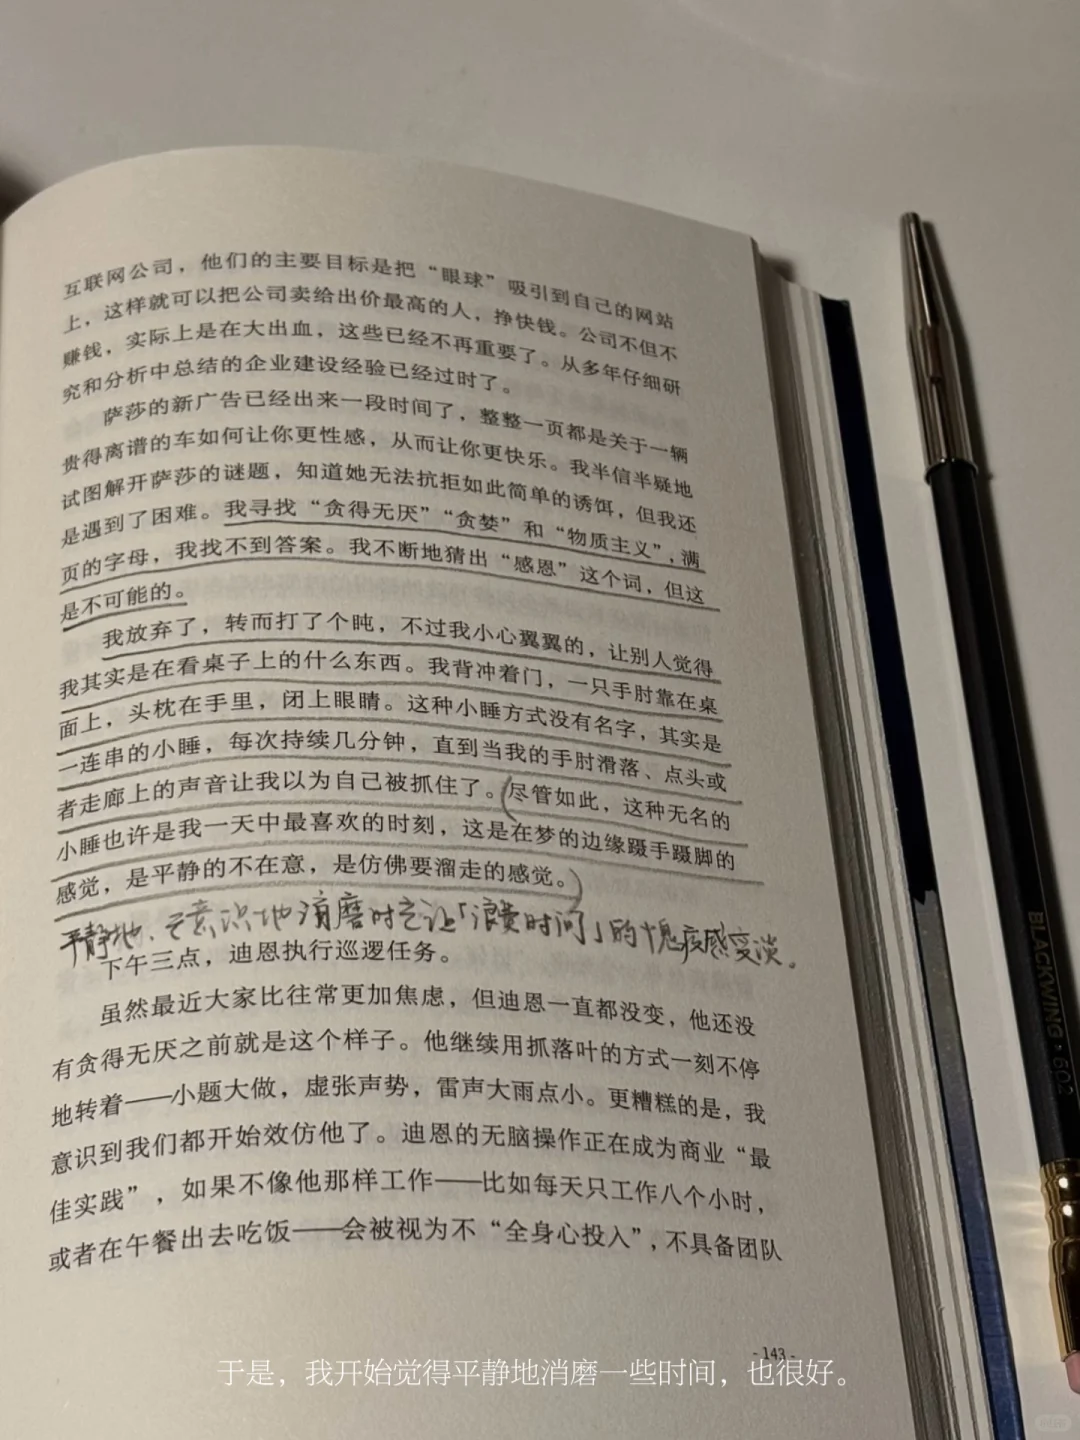 互联网公司，他们的主要目标是把“眼球”吸引到自己的网站
上，这样就可以把公司卖给出价最高的人，挣快钱。公司不但不
赚钱，实际上是在大出血，这些已经不再重要了。从多年仔细研
究和分析中总结的企业建设经验已经过时了。
萨莎的新广告已经出来一段时间了，整整一页都是关于一辆
贵得离谱的车如何让你更性感，从而让你更快乐。我半信半疑地
试图解开萨莎的谜题，知道她无法抗拒如此简单的诱饵，但我还
是遇到了困难。我寻找“贪得无厌”“贪婪”和“物质主义”，满
页的字母，我找不到答案。我不断地猜出“感恩”这个词，但这
是不可能的。
我放弃了，转而打了个盹，不过我小心翼翼的，让别人觉得
我其实是在看桌子上的什么东西。我背冲着门，一只手肘靠在桌
面上，头枕在手里，闭上眼睛。这种小睡方式没有名字，其实是
一连串的小睡，每次持续几分钟，直到当我的手肘滑落、点头或
者走廊上的声音让我以为自己被抓住了。（尽管如此，这种无名的
小睡也许是我一天中最喜欢的时刻，这是在梦的边缘蹑手蹑脚的
感觉，是平静的不在意，是仿佛要溜走的感觉。）
平静地、无意识地消磨时光让「浪费时间」的愧疚感变淡。
下午三点，迪恩执行巡逻任务。
虽然最近大家比往常更加焦虑，但迪恩一直都没变，他还没
有贪得无厌之前就是这个样子。他继续用抓落叶的方式一刻不停
地转着——小题大做，虚张声势，雷声大雨点小。更糟糕的是，我
意识到我们都开始效仿他了。迪恩的无脑操作正在成为商业“最
佳实践”，如果不像他那样工作——比如每天只工作八个小时，
或者在午餐出去吃饭——会被视为不“全身心投入”，不具备团队
- 143 -
于是，我开始觉得平静地消磨一些时间，也很好。
BLACKWING · 602